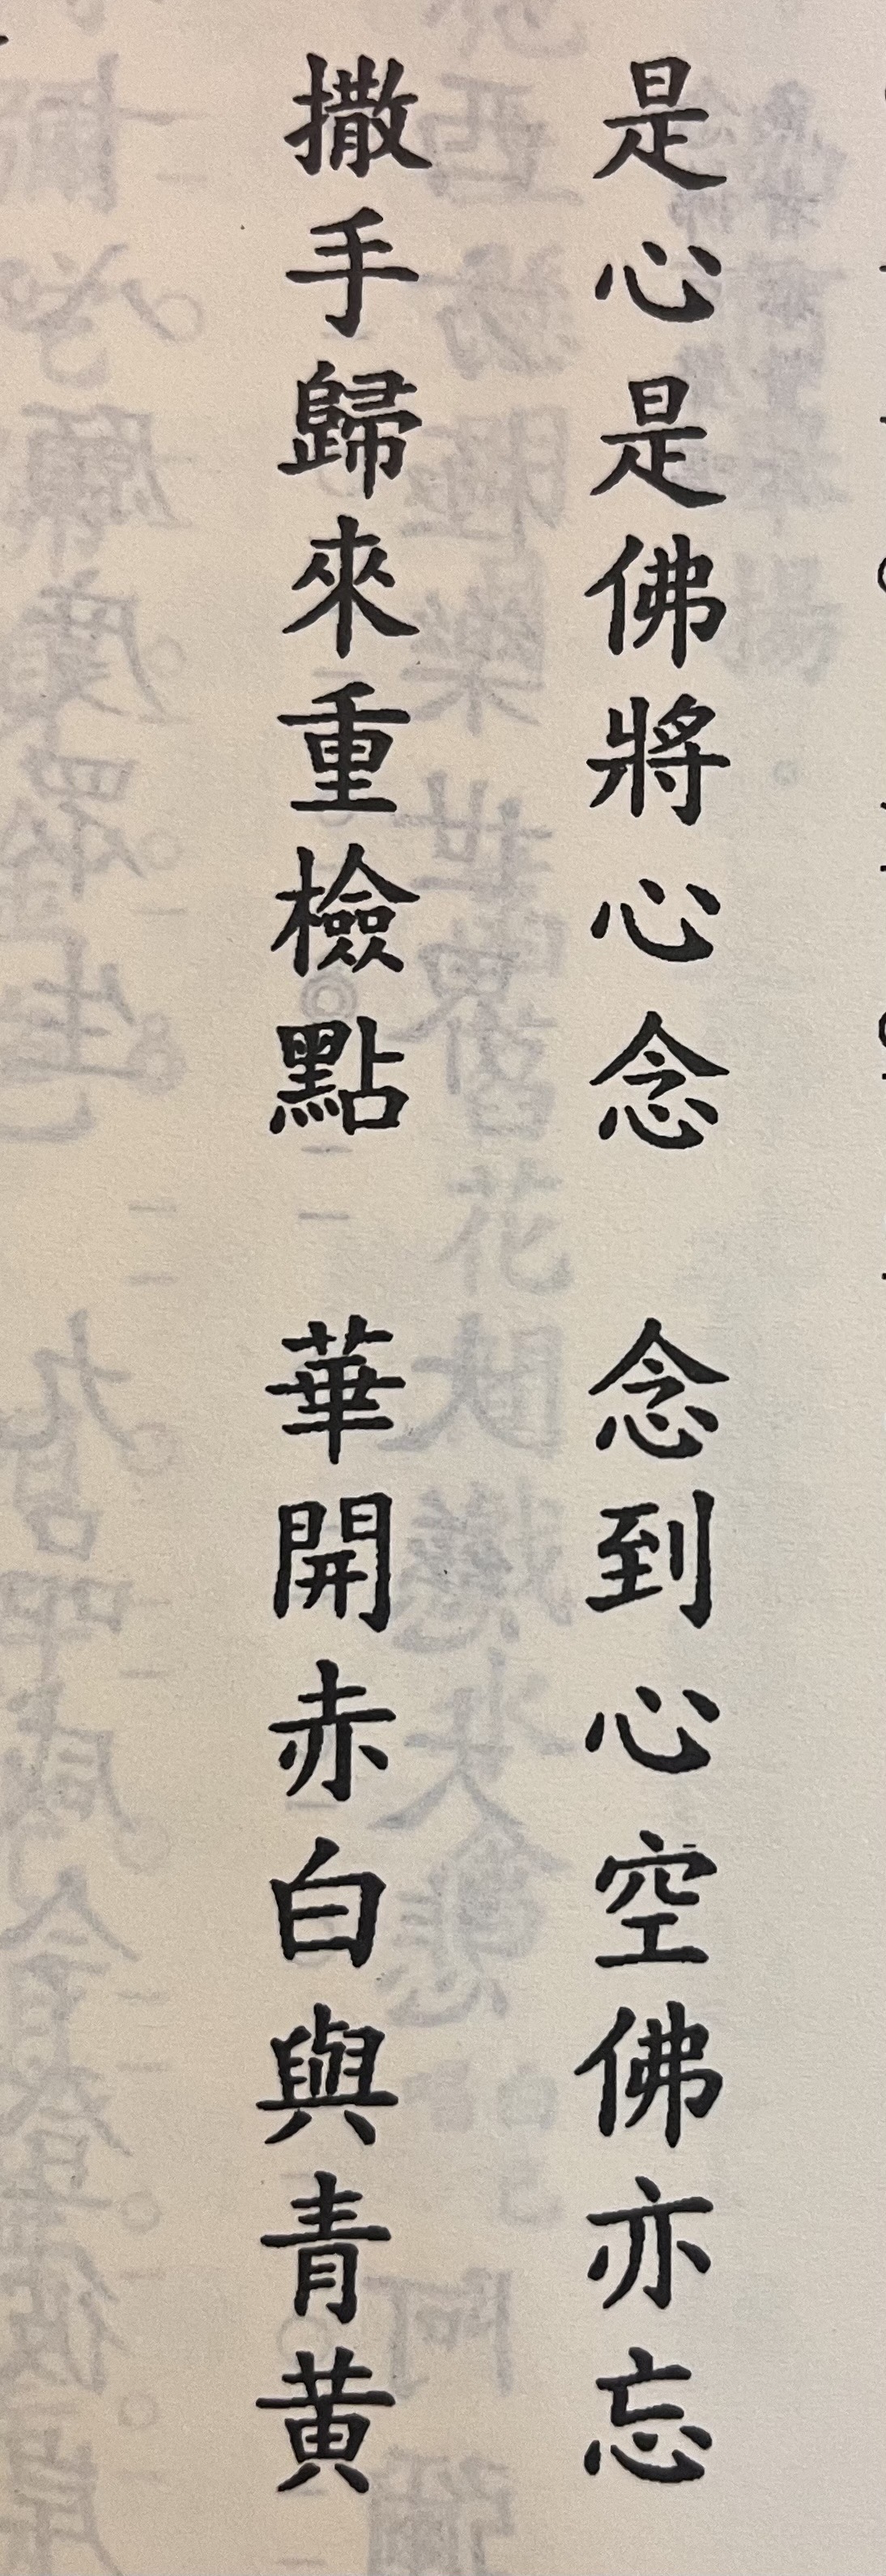 是心是佛將心念　念到心空佛亦忘
撒手歸來重檢點　華開赤白與青黄